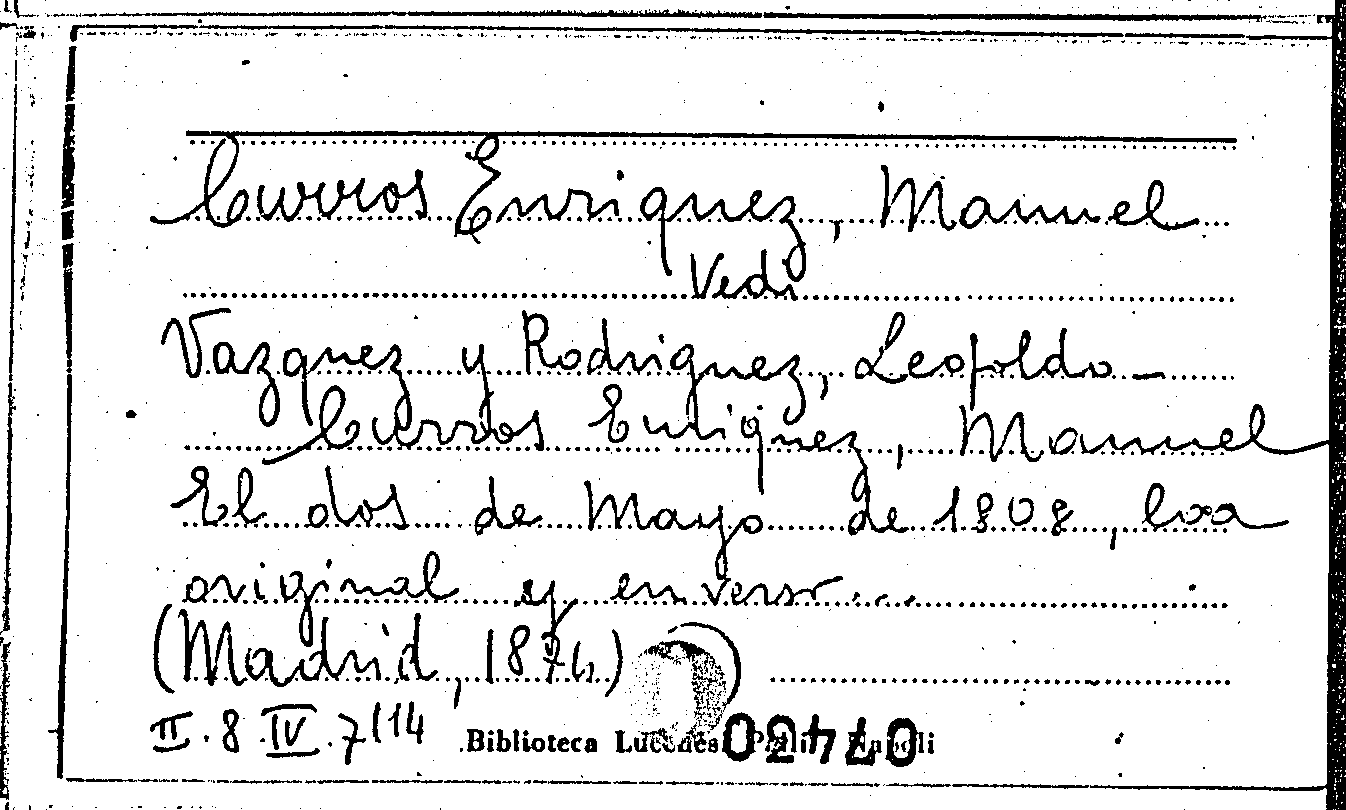 Curros Enriquez, Manuel
Vedi
Vazquez y Rodriguez, Leopoldo –
Curros Enriquez, Manuel
El dos de Mayo de 1808, loa
original y en verso...
(Madrid,
II.8.IV.7/14
Biblioteca Lucchesi Palli Napoli